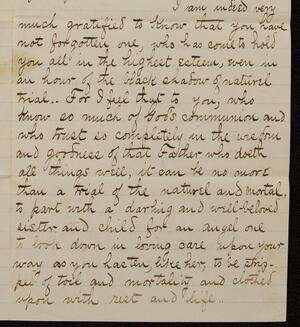 I am indeed very
much gratified to know that you have
not forgotten one, who has come to hold
you all in the highest esteem, even in
an hour of the black shadow of natural
trial.. For I feel that to you, who
know so much of God's communion and
who trust so completely in the wisdom
and goodness of that Father who doeth
all things well, it can be no more
than a trial of the natural and mortal,
to part with a darling and well-beloved
sister and child, for an angel one
to look down in loving care upon your
way as you hasten, like her, to be strip-
ped of toil and mortality and clothed
upon with rest and life..